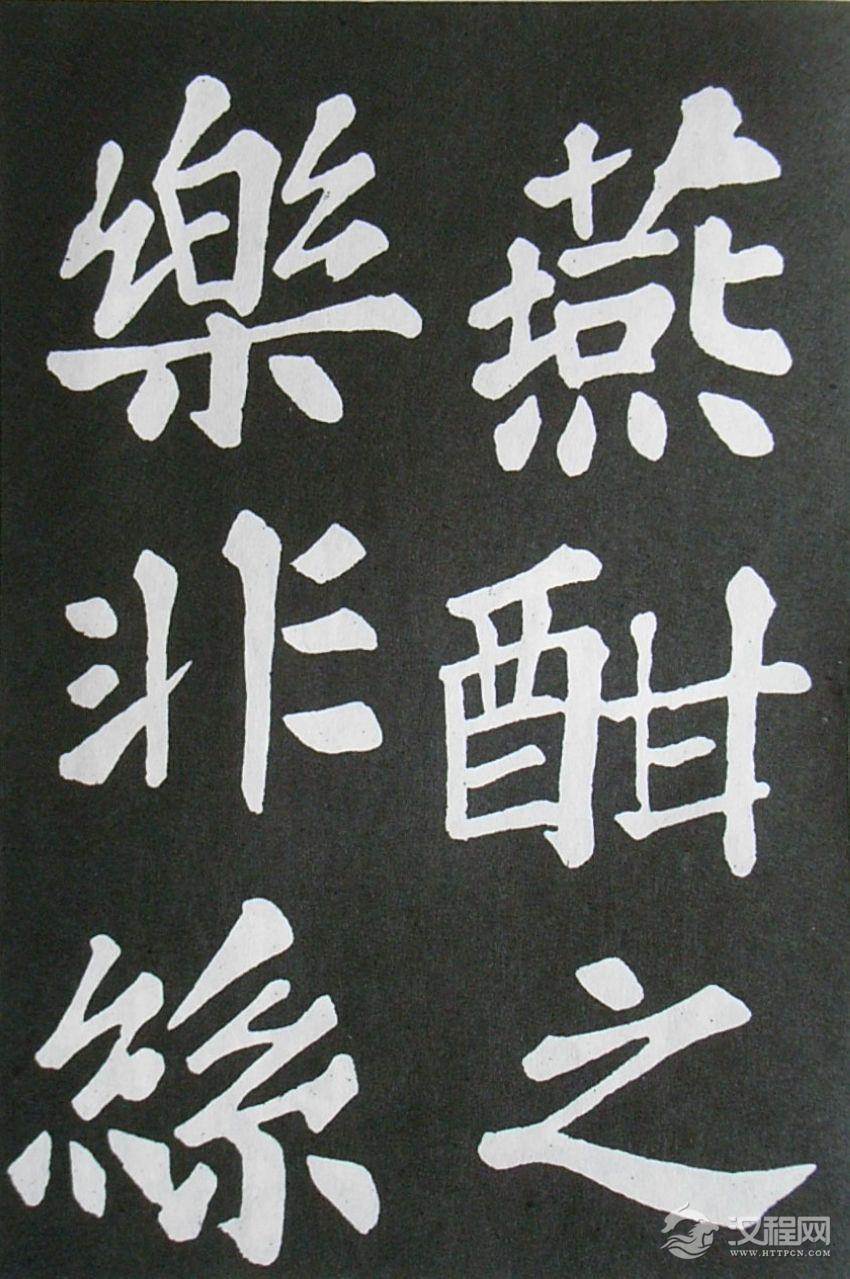 燕酣之
樂非絲
汉程网
WWW.HTTPCN.COM